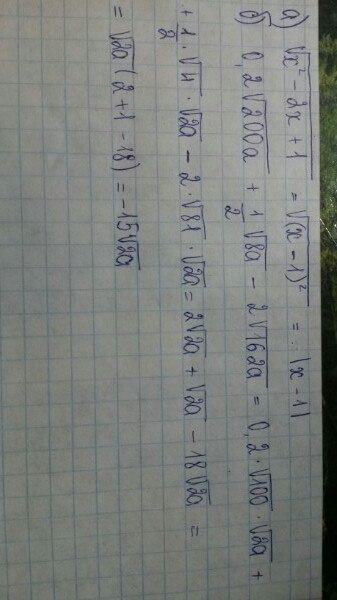 а) √(x² - 2x + 1) = √(x - 1)² = |x - 1|
б) 0,2√200a + 1/2 √8a - 2√162a = 0,2 · √100 · √2a +
+ 1/2 · √4 · √2a - 2 · √81 · √2a = 2√2a + √2a - 18√2a =
= √2a (2 + 1 - 18) = -15√2a